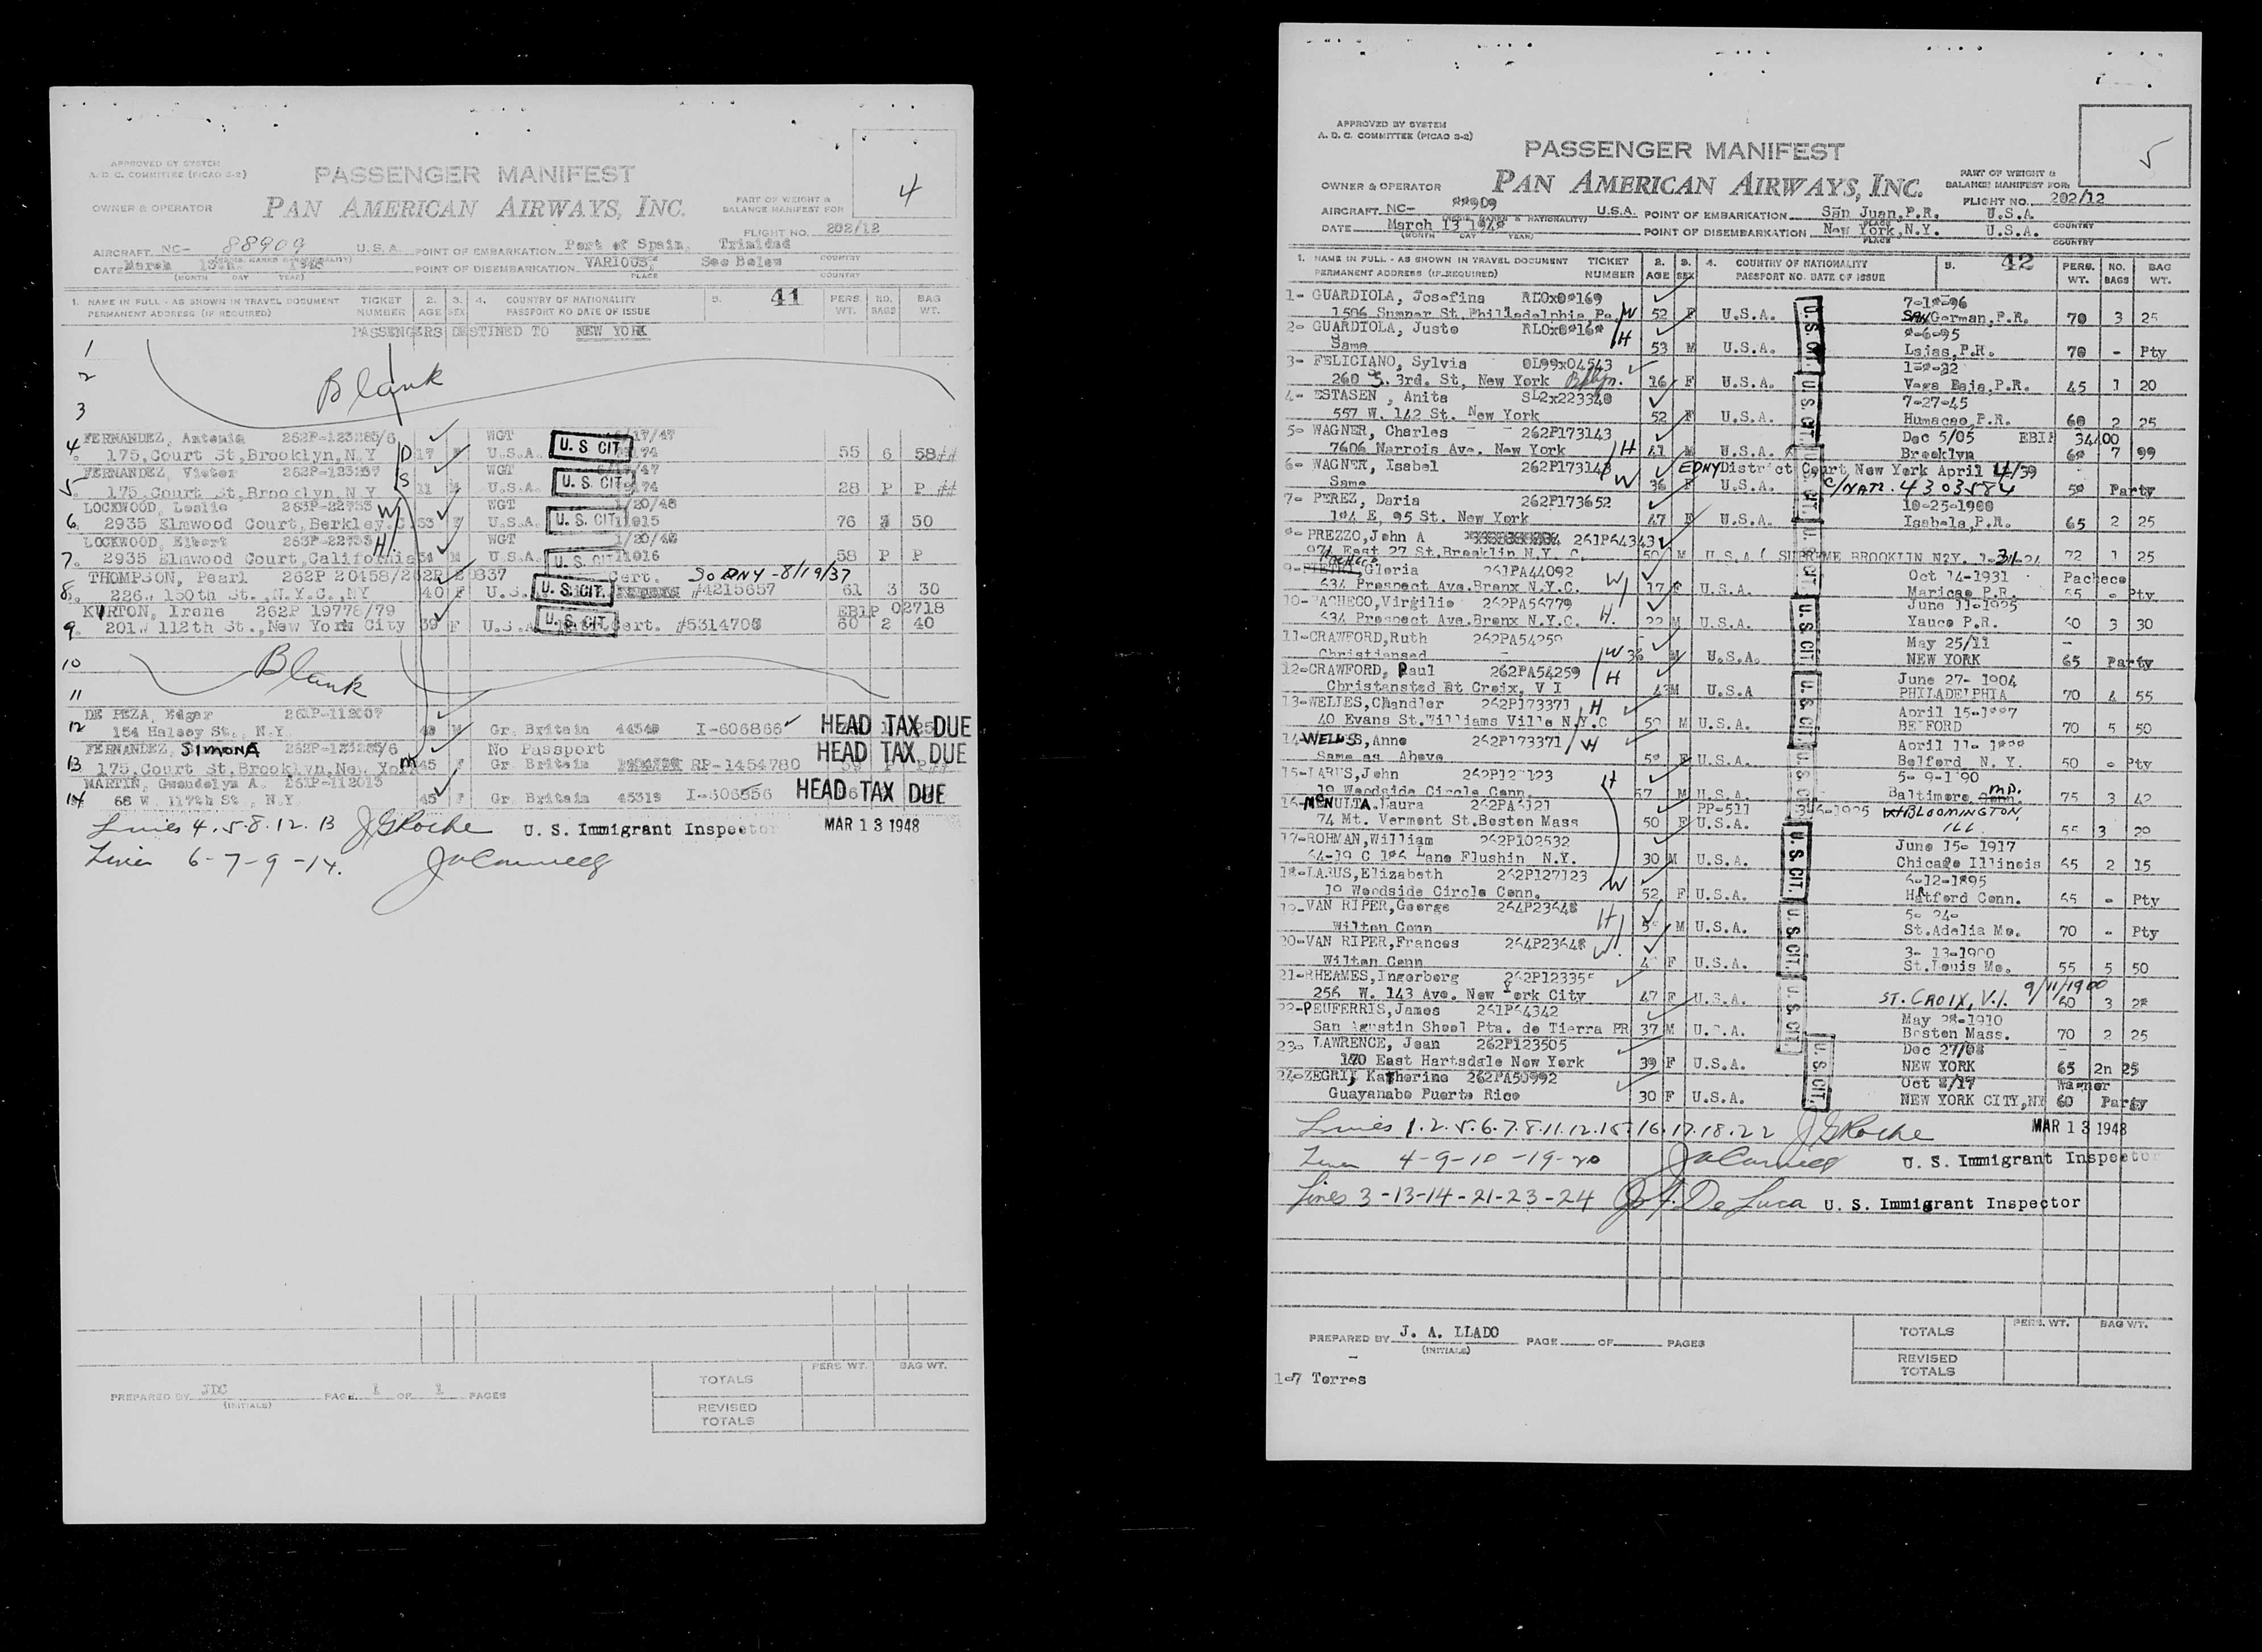 APPROVED BY SYSTEM
A. D. C. COMMITTEE (PICAO S-2)
4
PASSENGER MANIFEST
OWNER & OPERATOR PAN AMERICAN AIRWAYS, INC.
PART OF WEIGHT &
BALANCE MANIFEST FOR
FLIGHT NO. 202/12
AIRCRAFT NC- 88909 U.S.A. POINT OF EMBARKATION Port of Spain, Trinidad
DATE March 13th. 1948 POINT OF DISEMBARKATION VARIOUS, See Below
(MONTH DAY YEAR) PLACE COUNTRY
1. NAME IN FULL - AS SHOWN IN TRAVEL DOCUMENT TICKET 2. 3. 4. COUNTRY OF NATIONALITY 5. 41 PERS. NO. BAG
PERMANENT ADDRESS (IF REQUIRED) NUMBER AGE SEX PASSPORT NO DATE OF ISSUE WT. BAGS WT.
PASSENGERS DESTINED TO NEW YORK
1
2 Blank
3
4. FERNANDEZ, Antonia 262P-123285/6 WGT /17/47
175, Court St, Brooklyn, N.Y D 17 U.S.A. U. S CIT 174 55 6 58##
5. FERNANDEZ, Victor WGT /47
175, Court St, Brooklyn, N Y S 11 M U.S.A. U. S CIT 174 28 P P ##
LOCKWOOD, Leslie 263P-22733 W WGT 1/20/48
6. 2935 Elmwood Court, Berkley. 53 F U.S.A. U. S. CIT 11015 76 50
LOCKWOOD, Elbert 263P-22733 H WGT 1/20/48
7. 2935 Elmwood Court, California 54 M U.S.A. U. S. CIT 11016 58 P P
THOMPSON, Pearl 262P 20458/262P 20337 Cert. SO DNY - 8/19/37
8. 226W 150th St. ,N.Y.C.,NY 40 F U.S. U. S. CIT. #4215657 61 3 30
KURTON, Irene 262P 19778/79 EBIP 02718
9. 201W 112th St., New York City 39 F U.S.A U. S. CIT. Cert. 60 2 40
10 Blank
11
DE PEZA, Edgar 261P-112007
12 154 Halsey St., N.Y. 48 M Gr. Britain 44548 I-606866 HEAD TAX DUE
FERNANDEZ, SIMONA 262P-123285/6 No Passport HEAD TAX DUE
13 175, Court St, Brooklyn, New York M 45 F Gr. Britain RP-1454780
MARTIN, Gwendolyn A. 261P-112013
14 68 W. 117th St , N.Y. 45 F Gr. Britain 45319 I-606556 HEAD TAX DUE
Lines 4.5.8.12.13 J G Roche U. S. Immigrant Inspector MAR 13 1948
Lines 6-7-9-14.
TOTALS PERS WT. BAG WT.
PREPARED BY JDC PAGE 1 OF 1 PAGES
(INITIALS)
REVISED
TOTALS
APPROVED BY SYSTEM
A. D. C. COMMITTEE (PICAO S-2)
5
PASSENGER MANIFEST
OWNER & OPERATOR PAN AMERICAN AIRWAYS, INC.
PART OF WEIGHT &
BALANCE MANIFEST FOR:
FLIGHT NO. 202/12
AIRCRAFT NC- U.S.A. POINT OF EMBARKATION San Juan, P.R. U.S.A
DATE March 13 1948 POINT OF DISEMBARKATION New York, N.Y. U.S.A.
(MONTH DAY YEAR) PLACE COUNTRY
1. NAME IN FULL - AS SHOWN IN TRAVEL DOCUMENT TICKET 2. 3. 4. COUNTRY OF NATIONALITY 5. 42 PERS. NO. BAG
PERMANENT ADDRESS (IF REQUIRED) NUMBER AGE SEX PASSPORT NO. DATE OF ISSUE WT. BAGS WT.
1- GUARDIOLA, Josefina
1506 Sumner St. Philladelphia, Pa. W 52 F U.S.A. SAN German, P.R. 70 3 25
2- GUARDIOLA, Justo
Same H 53 M U.S.A. Lajas, P.R. 70 - Pty
3- FELICIANO, Sylvia 0L99x04543
260 S. 3rd. St, New York Bklyn. 26 F U.S.A. Vega Baja, P.R. 45 1 20
4- ESTASEN , Anita SL2x223340 7-27-45
557 W. 142 St. New York 52 F U.S.A. Humacao, P.R. 60 2 25
5- WAGNER, Charles 262P173143 Dec 5/05 EBIP 34400
7606 Narrois Ave. New York H 41 M U.S.A. Brooklyn 7 99
6- WAGNER, Isabel 262P173143 EDNY District Court, New York April 4/39
Same W 36 F U.S.A. C/NATZ. 4303584 50 Party
7- PEREZ, Daria 262P173652 10-25-1900
E, 95 St. New York 47 F U.S.A. Isabela, P.R. 65 2 25
8- PREZZO, John A 261P64343
971 East 27 St. Brooklin N.Y. C. 50 M U.S.A ( SUPREME BROOKLIN N.Y. 72 1 25
9- Gloria 261PA44092 Oct 14-1931 Pacheco
634 Prospect Ave. Bronx N.Y.C. W 17 F U.S.A. Maricao P.R. 55 - Pty
10- PACHECO, Virgilio 262PA56779 June 11-1925
634 Prospect Ave. Bronx N.Y.C. H. 22 M U.S.A. Yauco P.R. 60 3 30
11- CRAWFORD, Ruth 262PA54259 May 25/11
Christiansed W 36 U.S.A. NEW YORK 65 Party
12- CRAWFORD, Paul 262PA54259 June 27- 1904
Christansted St Croix, V I H 43 M U.S.A PHILADELPHIA 70 4 55
13- WELLES, Chandler 262P173371 H April 15-
40 Evans St. Williams Ville N.Y.C 50 M U.S.A. BELFORD 70 5 50
14- WELLES, Anne 262P173371 W April 11-
Same as Above F U.S.A. Belford N. Y. 50 - Pty
15- LARUS, John 262P127123 H
19 Woodside Circle Conn. 57 M U.S.A. Baltimore MD. 75 3 42
16- MCNULTA, Laura PP-511 BLOOMINGTON,
74 Mt. Vermont St. Boston Mass 50 F U.S.A. ILL 55 3 20
17- ROHMAN, William 262P102532 June 15- 1917
Lane Flushin N.Y. 30 M U.S.A. Chicago Illinois 65 2 15
18- LARUS, Elizabeth 262P127123 6-12-1895
19 Woodside Circle Conn. W 52 F U.S.A. Hartford Conn. 65 - Pty
19- VAN RIPER, George 264P23648 5- 24-
Wilton Conn H M U.S.A. St. Adelia Mo. 70 - Pty
20- VAN RIPER, Frances 264P23648 3- 13-1900
Wilton Conn W. F U.S.A. St. Louis Mo. 55 5 50
21- RHEAMES, Ingerborg 9/11/1900
256 W. 143 Ave. New York City 47 F U.S.A. ST. CROIX, V.I. 60 3 28
22- PEUFERRIS, James 261P64342 May 28-1910
San Agustin Sheol Pta. de Tierra PR 37 M U.S.A. Boston Mass. 70 2 25
23- LAWRENCE, Jean 262P123505 Dec 27/08
170 East Hartsdale New York 39 F U.S.A. NEW YORK 65 2n 25
24- ZEGRI, Katherine 262PA50992 Oct 8/17 Wagner
Guayanabo Puerto Rico 30 F U.S.A. NEW YORK CITY, NY 60 Party
U. S. CIT.
Lines 1.2.5.6.7.8.11.12.15.16.17.18.22 J G Roche MAR 13 1948
Lines 4-9-10-19-20 U. S. Immigrant Inspector
Lines 3-13-14-21-23-24 De Luca U. S. Immigrant Inspector
PREPARED BY J. A. LLADO PAGE OF PAGES
(INITIALS)
TOTALS PERS. WT. BAG WT.
REVISED
TOTALS
1-7 Torres